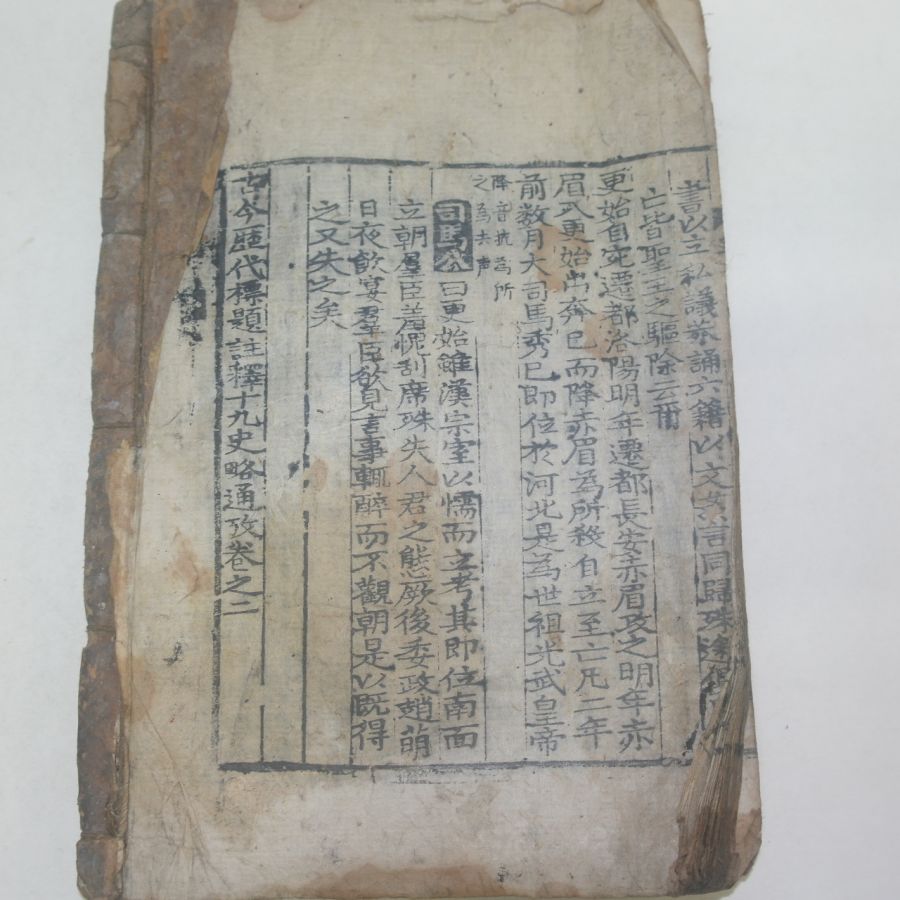 書以立私議莽誦六籍以文姦言同歸殊塗俱
亡皆聖王之驅除云爾
更始自宛遷都洛陽明年遷都長安赤眉攻之明年赤
眉入更始出奔已而降赤眉為所殺自立至亡凡二年
前数月大司馬秀已即位於河北是為世祖光武皇帝
降音抗為所
之為去声
司馬公曰更始雖漢宗室以懦而立考其即位南面
立朝羣臣羞愧刮席殊失人君之態厥後委政趙萌
日夜飲宴羣臣欲見言事輒醉而不觀朝是以既得
之又失之矣
古今歷代標題註釋十九史略通攷卷之二